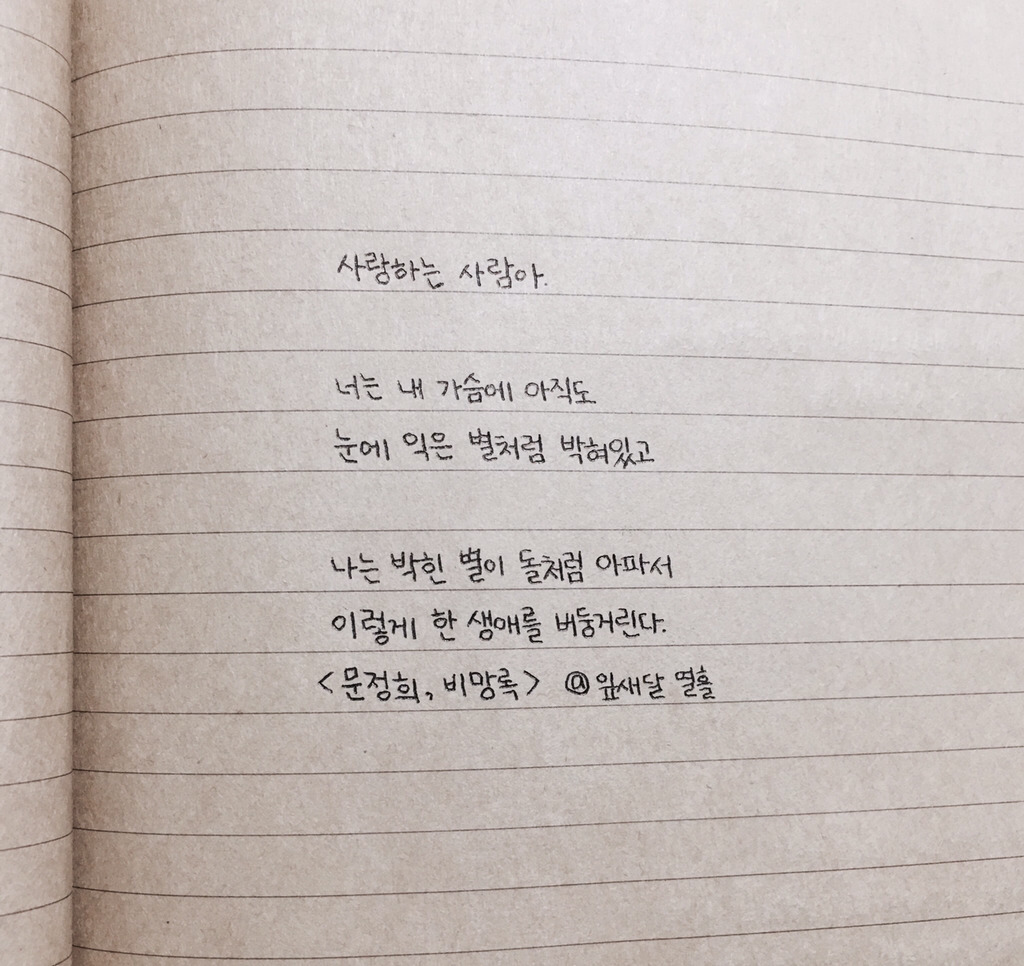 사랑하는 사람아.
너는 내 가슴에 아직도
눈에 익은 별처럼 박혀있고
나는 박힌 별이 돌처럼 아파서
이렇게 한 생애를 버둥거린다.
<문정희, 비망록> @잎새달 열흘